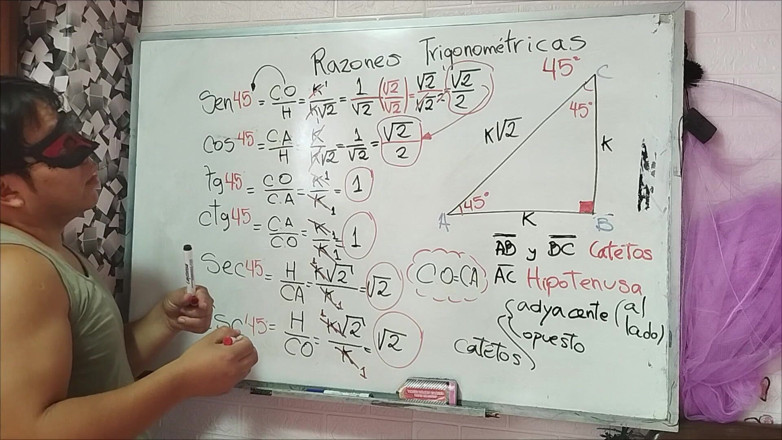 Razones Trigonométricas
45°
Sen45 = CO/H = K/K√2 = 1/√2 (√2/√2) = √2/√2² = √2/2
cos45 = CA/H = K/K√2 = 1/√2 = √2/2
Tg45 = CO/CA = K1/K1 = 1
ctg45 = CA/CO = K1/K1 = 1
Sec45 = H/CA = 1K√2/K1 = √2
45 = H/CO = 1K√2/K1 = √2
C
45°
K√2
K
45°
A
K
B
AB y BC Catetos
CO=CA
AC Hipotenusa
Catetos
adyacente (al lado)
opuesto